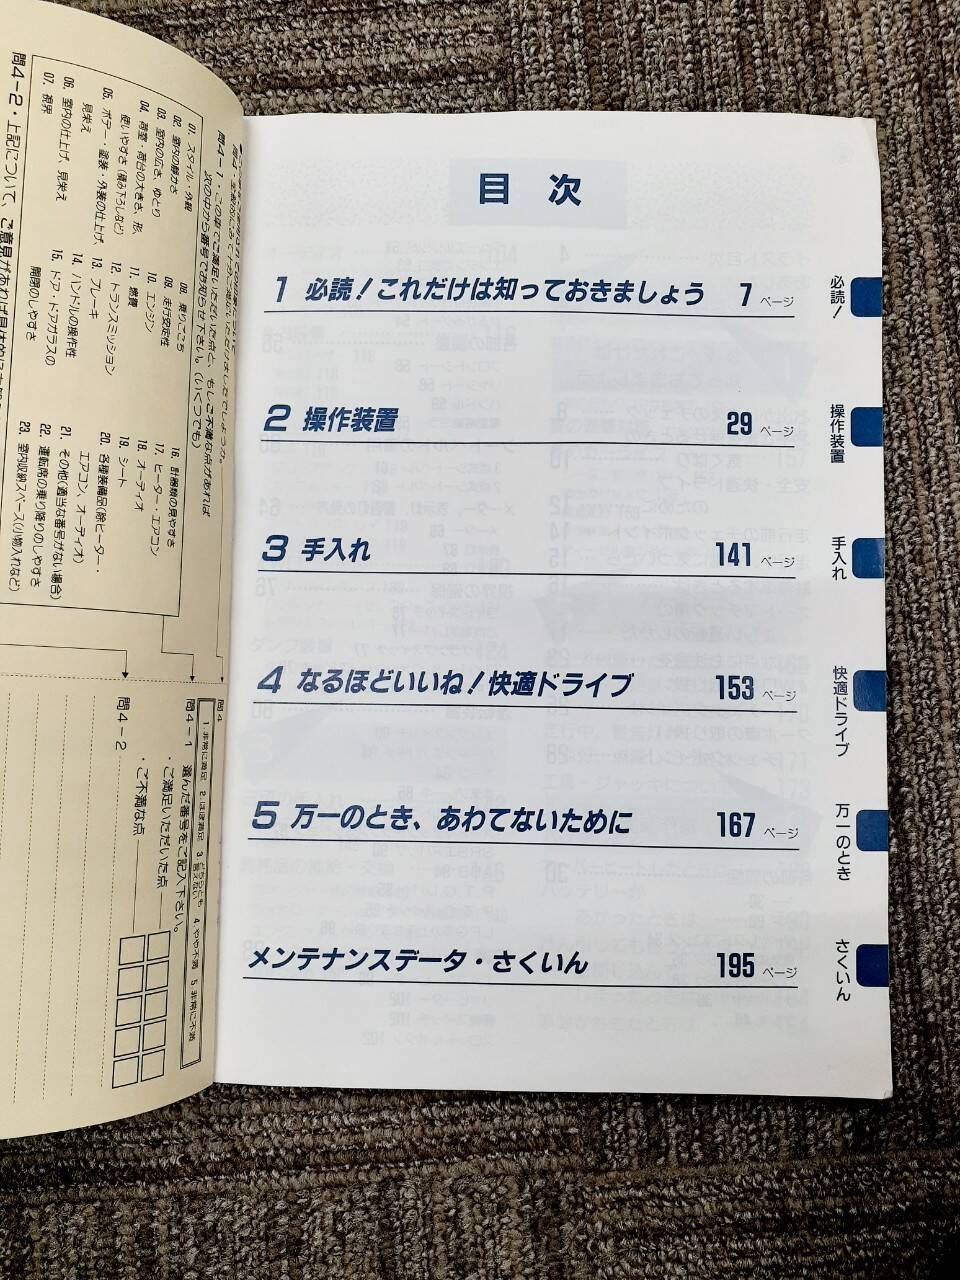 目次
1 必読！これだけは知っておきましょう 7ページ
2 操作装置 29ページ
3 手入れ 141ページ
4 なるほどいいね！快適ドライブ 153ページ
5 万一のとき、あわてないために 167ページ
メンテナンスデータ・さくいん 195ページ
必読！
操作装置
手入れ
快適ドライブ
万一のとき
さくいん
問4-1・この車でご満足いただいた点と、もしご不満な点があれば
次の中から番号でお知らせ下さい。(いくつでも)
01. スタイル・外観
02. 室内の静かさ
03. 室内の広さ、ゆとり
04. 荷室・荷台の大きさ、形、
使いやすさ(積み下ろしなど)
05. ボデー・塗装・外装の仕上げ、
見栄え
06. 室内の仕上げ、見栄え
07. 視界
08. 乗りごこち
09. 走行安定性
10. エンジン
11. 燃費
12. トランスミッション
13. ブレーキ
14. ハンドルの操作性
15. ドア・ドアガラスの
開閉のしやすさ
16. 計器類の見やすさ
17. ヒーター・エアコン
18. オーディオ
19. シート
20. 各種装備品(除ヒーター・
エアコン、オーディオ)
21. その他(適当な番号がない場合)
22. 運転席の乗り降りのしやすさ
23. 室内収納スペース(小物入れなど)
問4-2・上記について、ご意見があれば具体的に
問4
1. 非常に満足 2. ほぼ満足 3. どちらとも言えない 4. やや不満 5. 非常に不満
問4-1 選んだ番号をご記入下さい。
・ご満足いただいた点
・ご不満な点
問4-2